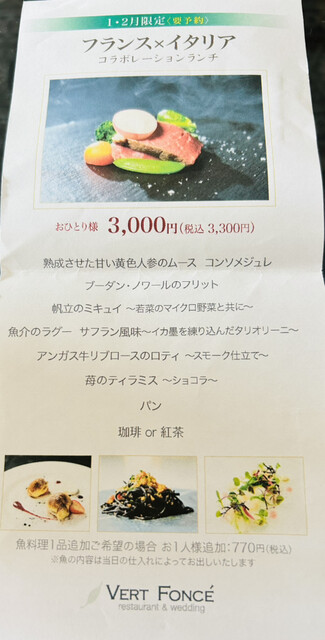 1・2月限定〈要予約〉
フランス×イタリア
コラボレーションランチ
おひとり様 3,000円(税込 3,300円)
熟成させた甘い黄色人参のムース コンソメジュレ
ブーダン・ノワールのフリット
帆立のミキュイ ～若菜のマイクロ野菜と共に～
魚介のラグー サフラン風味～イカ墨を練り込んだタリオリーニ～
アンガス牛リブロースのロティ ～スモーク仕立て～
苺のティラミス ～ショコラ～
パン
珈琲 or 紅茶
魚料理1品追加ご希望の場合 お1人様追加：770円(税込)
※魚の内容は当日の仕入れによってお出しいたします
VERT FONCÉ
restaurant & wedding